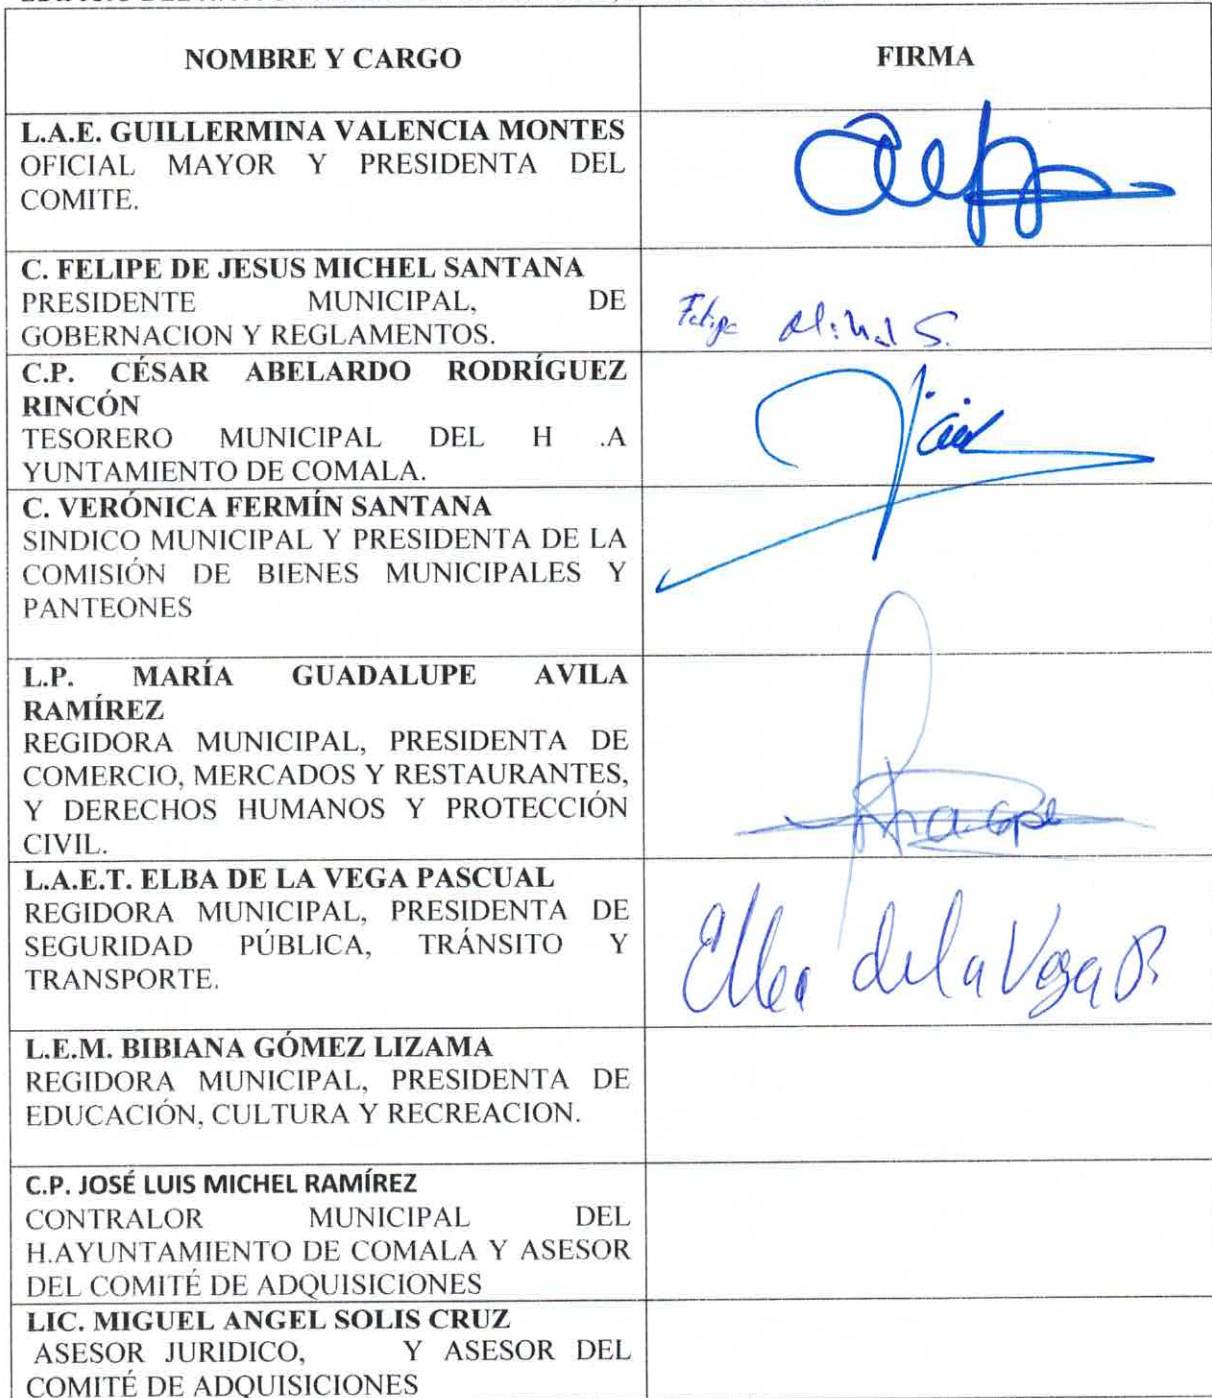 NOMBRE Y CARGO
FIRMA
L.A.E. GUILLERMINA VALENCIA MONTES
OFICIAL MAYOR Y PRESIDENTA DEL
COMITE.
C. FELIPE DE JESUS MICHEL SANTANA
PRESIDENTE MUNICIPAL, DE
GOBERNACION Y REGLAMENTOS.
Felipe Michel S.
C.P. CÉSAR ABELARDO RODRÍGUEZ
RINCÓN
TESORERO MUNICIPAL DEL H .A
YUNTAMIENTO DE COMALA.
C. VERÓNICA FERMÍN SANTANA
SINDICO MUNICIPAL Y PRESIDENTA DE LA
COMISIÓN DE BIENES MUNICIPALES Y
PANTEONES
L.P. MARÍA GUADALUPE AVILA
RAMÍREZ
REGIDORA MUNICIPAL, PRESIDENTA DE
COMERCIO, MERCADOS Y RESTAURANTES,
Y DERECHOS HUMANOS Y PROTECCIÓN
CIVIL.
L.A.E.T. ELBA DE LA VEGA PASCUAL
REGIDORA MUNICIPAL, PRESIDENTA DE
SEGURIDAD PÚBLICA, TRÁNSITO Y
TRANSPORTE.
Elba de la Vega P.
L.E.M. BIBIANA GÓMEZ LIZAMA
REGIDORA MUNICIPAL, PRESIDENTA DE
EDUCACIÓN, CULTURA Y RECREACION.
C.P. JOSÉ LUIS MICHEL RAMÍREZ
CONTRALOR MUNICIPAL DEL
H.AYUNTAMIENTO DE COMALA Y ASESOR
DEL COMITÉ DE ADQUISICIONES
LIC. MIGUEL ANGEL SOLIS CRUZ
ASESOR JURIDICO, Y ASESOR DEL
COMITÉ DE ADQUISICIONES